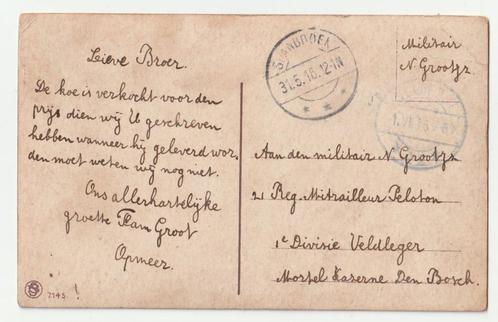 Lieve Broer.
De koe is verkocht voor den
prijs dien wij U geschreven
hebben wanneer hij geleverd wor.
den moet weten wij nog niet.
Ons allerhartelijke
groette Fam Groot
Opmeer.
SPANBROEK
31.5.16.12-1N
Militair
N. Grootjr
1.VI.16
Aan den militair N. Grootjr
21 Reg. Mitrailleur Peloton
1e Divisie Veldleger
Mortel Kazerne Den Bosch.
7145